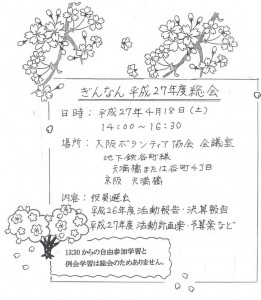 ぎんなん 平成27年度総会
日時：平成27年4月18日（土）
14:00～16:30
場所：大阪ボランティア協会 会議室
地下鉄谷町線
天満橋または谷町4丁目
京阪 天満橋
内容：役員選出
平成26年度活動報告・決算報告
平成27年度活動計画案・予算案など
13:30からの自由参加学習と
例会学習は総会のためありません。